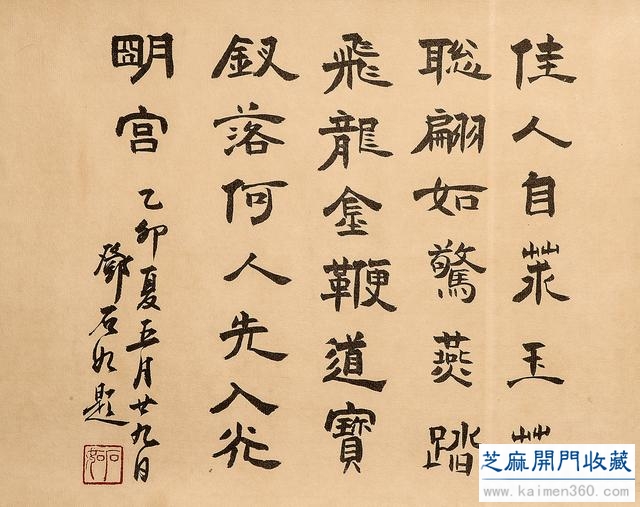 佳人自玉
聡翩如驚燕踏
飛龍金鞭道寶
釵落何人先入光
朙宫
乙卯夏五月廿九日
鄧石如題
石如
芝麻開門收藏
www.kaimen360.com